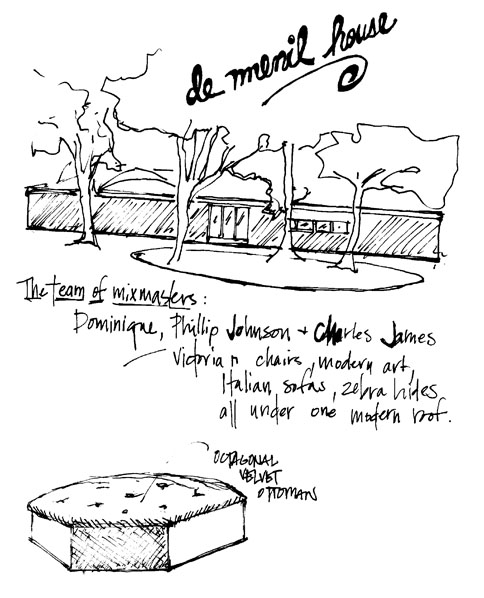 de menil house
The team of mixmasters:
Dominique, Phillip Johnson + Charles James
Victorian chairs, modern art,
Italian sofas, zebra hides
all under one modern roof.
OCTAGONAL
VELVET
OTTOMANS